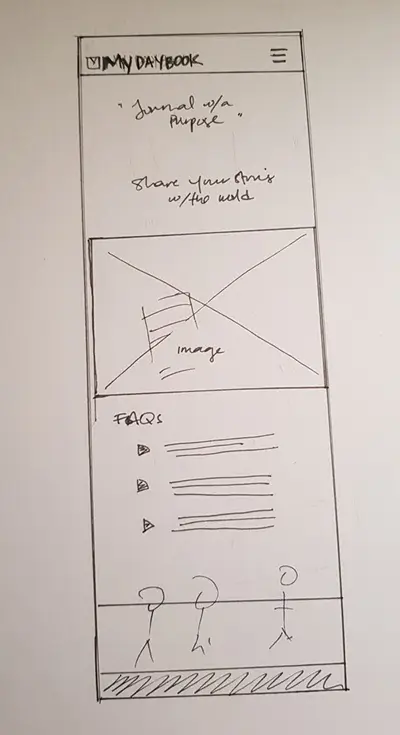 MY DAYBOOK
" Journal w/a
Purpose "
Share your stories
w/the world
image
FAQs